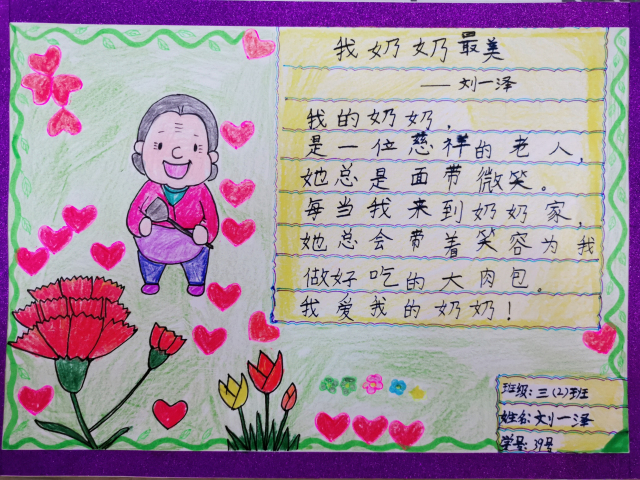 我奶奶最美
——刘一泽
我的奶奶，
是一位慈祥的老人，
她总是面带微笑。
每当我来到奶奶家，
她总会带着笑容为我
做好吃的大肉包。
我爱我的奶奶！
班级：三（2）班
姓名：刘一泽
学号：39号